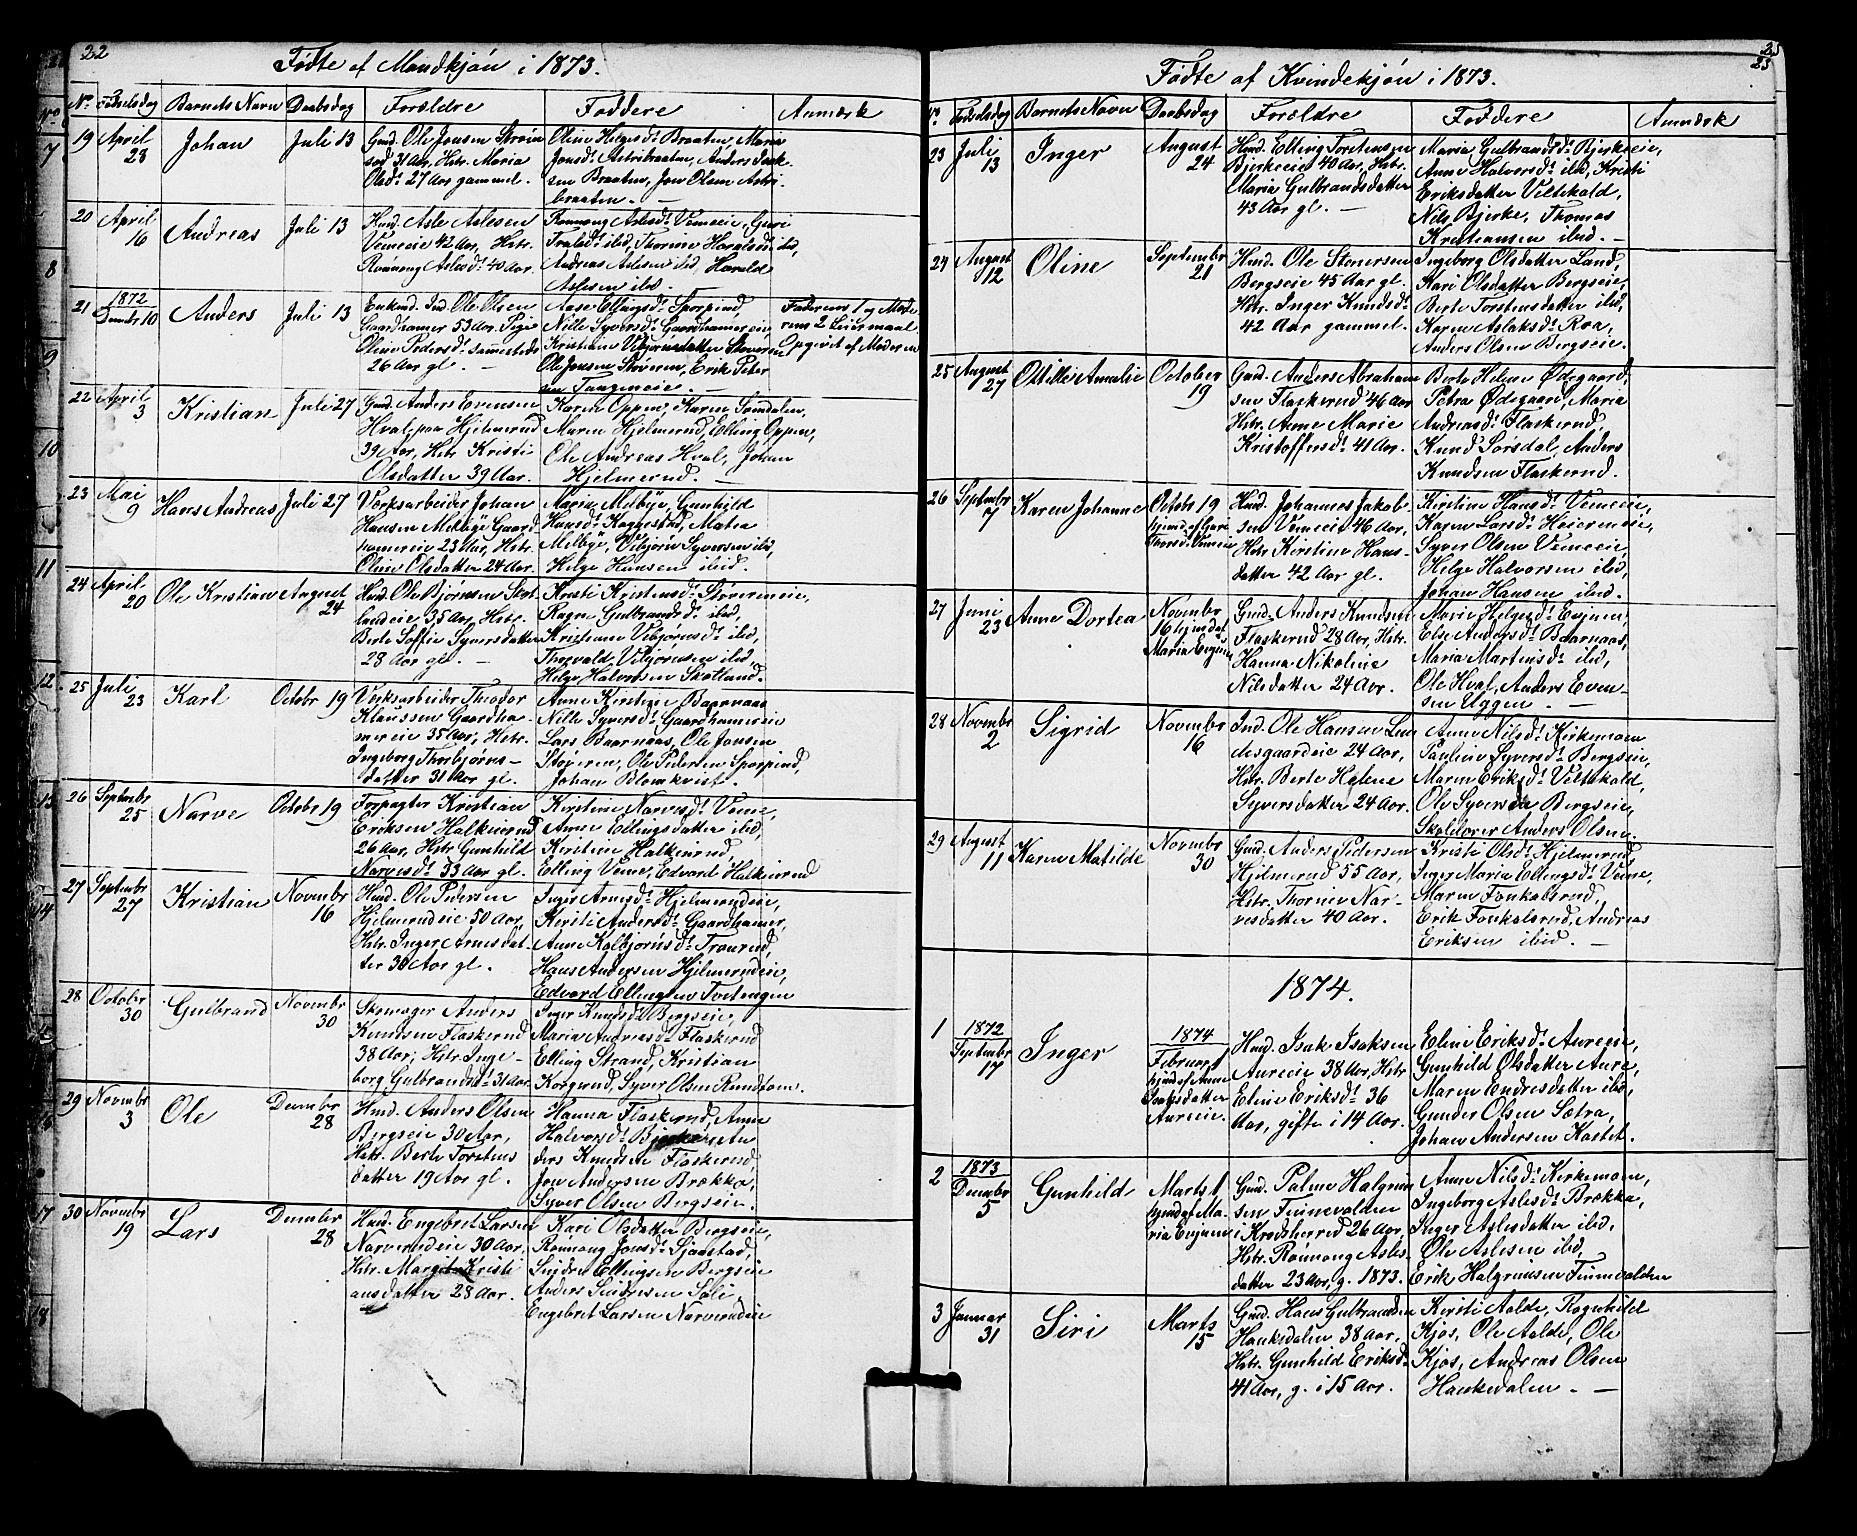 22
Fødte af Mandkjøn i 1873.
No. Fødselsdag Barnets Navn Daabsdag Forældre Faddere Anmærk
19 April 28 Johan Juli 13
Gmd. Ole Jonsen
31 Aar, Hstr. Maria
Olsdr. 27 Aar gammel.
Oline Helgesdr. Braaten, Maria
Jonsdr. Astribraaten, Anders Isak-
sen Braaten, Jon Olsen Astri-
braaten. —
20 April 16 Andreas Juli 13
Hmd. Asle Aslesen
Vemeeie 42 Aar, Hstr.
Rønnaug Aslesdr. 40 Aar.
Rønnaug Aslesdr. Vemeeie, Guri
ibid, Thorine Haraldsdr. ibid,
Andreas Aslesen ibid, Harald
Aslesen ibd.
21 1872 Decmbr 10 Anders Juli 13
Enkmd. Ind. Ole Olsen
Gaardhamer 53 Aar. Pige
Oline Pedersdr. sammesteds
26 Aar gl. —
Aase Ellingsdr. Sporpind,
Nille Syversdr. Gaardhamereie,
Kristiane Vibjørnsdatter Støveren
Ole Jonsen Støveren, Erik Peter
sen Tangeneie. —
Faderens 1 og Mode
rens 2 Leiermaal
Opgivet af Moderen
22 April 3 Kristian Juli 27
Gmd. Anders Evensen
Hval, paa Hjelmerud
39 Aar, Hstr. Kristi
Olsdatter 39 Aar.
Karen Oppen, Karen Semdalen,
Maren Hjelmerud, Elling Oppen,
Ole Andreas Hval, Johan
Hjelmerud. —
23 Mai 9 Hans Andreas Juli 27
Værksarbeider Johan
Hansen Melbye Gaard-
hamereie 23 Aar, Hstr.
Oline Olsdatter 24 Aar.
Maria Melbye, Gunhild
Hansdr. Kaggestad, Matea
Melbye, Vibjørn Syversen ibid,
Helge Hansen ibid.
24 April 20 Ole Kristian August 24
Hmd. Ole Bjørnsen Skot
landeie 35 Aar, Hstr.
Berte Soffie Syversdatter
28 Aar gl. —
Kristi Kristensdr. Støvereneie,
Ragne Gulbrandsdr. ibid,
Kristiane Vibjørnsdr. ibid,
Thorvald Vibjørnsen ibid,
Helge Halvorsen Skotland.
25 Juli 23 Karl Octobr 19
Værksarbeider Theodor
Klaussen Gaardha-
mereie 35 Aar, Hstr.
Ingeborg Thorbjørns-
datter 31 Aar gl.
Anne Kirstine Baarnaas
Nille Syversdr. Gaardhamereie
Lars Baarnaas, Ole Jonsen
Støveren, Ole Pedersen Sporpind,
Johan Blomkvist.
26 Septmbr 25 Narve Octobr 19
Forpagter Kristian
Eriksen Halkinrud
26 Aar, Hstr Gunhild
Narvesdr. 33 Aar gl.
Kirstine Narvesdr. Veme,
Anne Ellingsdatter ibid,
Kirstine Halkinrud,
Elling Veme, Edvard Halkinrud
27 Septmbr 27 Kristian Novmbr 16
Hmd. Ole Pedersen
Hjelmerudeie 50 Aar,
Hstr. Inger Arnesdat-
ter 30 Aar gl.
Inger Arnesdr. Hjelmerudeie,
Kersti Andersdr. Gaardhamer,
Anne Kolbjørnsdr. Tronrud,
Hans Andersen Hjelmerudeie,
Edvard Ellingsen Tvetengen
28 October 30 Gulbrand Novmbr 30
Skomager Anders
Knudsen Flaskerud
38 Aar, Hstr. Inge-
borg Gulbrandsdr. 31 Aar.
Inger Knudsdr. Bergseie,
Maria Andreasdr. Flaskerud
Elling Strand, Kristian
Korgerud, Syver Olsen Rundtom.
29 Novmbr 3 Ole Decmber 28
Hmd. Anders Olsen
Bergseie 30 Aar,
Hstr. Berte Torstens
datter 19 Aar gl.
Hanna Flaskerud, Anne
Halvorsdr. Bjerke, An
ders Knudsen Flaskerud,
Jon Andersen Brækka,
Syver Olsen Bergseie.
30 Novmbr 19 Lars Decmber 28
Hmd. Engebret Larsen
Narverudeie 30 Aar,
Hstr. Margit Kristi
ansdatter 28 Aar.
Kari Olsdatter Bergseie,
Rønnaug Jonsdr. Sjaastad,
Sindre Ellingsen Bergseie
Anders Sindresen Søli,
Engebret Larsen Narverudeie
23
Fødte af Kvindekjøn i 1873.
No. Fødselsdag Barnets Navn Daabsdag Forældre Faddere Anmærk
23 Juli 13 Inger August 24
Hmd. Elling Torstensen
Bjerkeeie 40 Aar, Hstr.
Maria Gulbrandsdatter
43 Aar gl. —
Maria Gulbrandsdr. Bjerkeeie,
Anne Halvorsdr. ibid, Kristi
Eriksdatter Viltekald,
Nils Bjerke, Thomas
Kristiansen ibid. —
24 August 12 Oline Septembr 21
Hmd. Ole Stonersen
Bergseie 45 Aar gl.
Hstr. Inger Knudsdr.
42 Aar gammel.
Ingeborg Olsdatter Land,
Kari Olsdatter Bergseie,
Berte Torstensdatter ibid,
Karen Aslaksdr. Roa,
Anders Olsen Bergseie.
25 August 27 Ottilie Amalie October 19
Gmd. Anders Abraham
sen Flaskerud 46 Aar
Hstr. Anne Marie
Kristoffersdr. 41 Aar.
Berte Helene Ødegaard,
Petra Ødegaard, Maria
Andreasdr. Flaskerud,
Knud Sørsdal, Anders
Knudsen Flaskerud.
26 Septmbr 7 Karen Johanne
Octobr 19
hjmd. af Guri
Thorsdr. Vemeeie
Hmd. Johannes Jakob-
sen Vemeeie 46 Aar,
Hstr. Kirstine Hans-
datter 42 Aar gl.
Kirstine Hansdr. Vemeeie,
Karen Larsdr. Heiereneie,
Syver Olsen Vemeeie,
Helge Halvorsen ibid,
Johan Hansen ibid.
27 Juni 23 Anne Dortea
Novmbr
16 hjmd af
Maria Enjum
Gmd. Anders Knudsen
Flaskerud 28 Aar, Hstr.
Hanna Nikoline
Nilsdatter 24 Aar.
Marie Helgesdr. Enjum,
Else Andersdr. Baarnaas,
Maria Martinsdr. ibid,
Ole Hval, Anders Even-
sen Uggen. —
28 Novmbr 2 Sigrid Novmbr 16
Ind. Ole Hansen Len
desgaardeie 24 Aar,
Hstr. Berte Helene
Syversdatter 24 Aar.
Anne Nilsdr. Kirkemoen
Pauline Syversdr. Bergseie,
Maren Eriksdr. Viltekald,
Ole Syversen Bergseie,
Skolelærer Anders Olsen.
29 August 11 Karen Matilde Novmbr 30
Gmd. Anders Pedersen
Hjelmerud 55 Aar,
Hstr. Thorine Nar-
vesdatter 40 Aar.
Kristi Olsdr. Hjelmerud
Inger Maria Ellingsdr. Veme,
Maren Fonkalsrud,
Erik Fonkalsrud, Andreas
Eriksen ibid. —
1874.
1 1872 Septmber 17 Inger
1874
Februar 1
hjmd af Anne
Isaksdatter
Aureeie.
Hmd. Isak Isaksen
Aureeie 38 Aar, Hstr
Eline Eriksdr. 36
Aar, gifte i 14 Aar.
Eline Eriksdr. Aureeie,
Gunhild Olsdatter Aure,
Maren Endresdatter ibid,
Gunder Olsen Sætra,
Johan Andersen Kastet.
2 1873 Decmbr 5 Gunhild
Marts 1
hjmd af Ma-
ria Enjum
Gmd. Palme Halgrim
sen Finnevolden
i Krødsherred 26 Aar,
Hstr. Rønnaug Asles-
datter 23 Aar, g. 1873.
Anne Nilsdr. Kirkemoen,
Ingeborg Aslesdr. Brækka,
Inger Aslesdatter ibid,
Ole Aslesen ibid,
Erik Halgrimsen Finnevolden
3 Januar 31 Siri Marts 15
Gmd. Hans Gulbrandsen
Hanksdalen 38 Aar,
Hstr. Gunhild Eriksdr.
41 Aar, g. i 15 Aar.
Kirsti Aalde, Ragnhild
Kjos, Ole Aalde, Ole
Kjos, Andreas Olsen
Hanksdalen. —